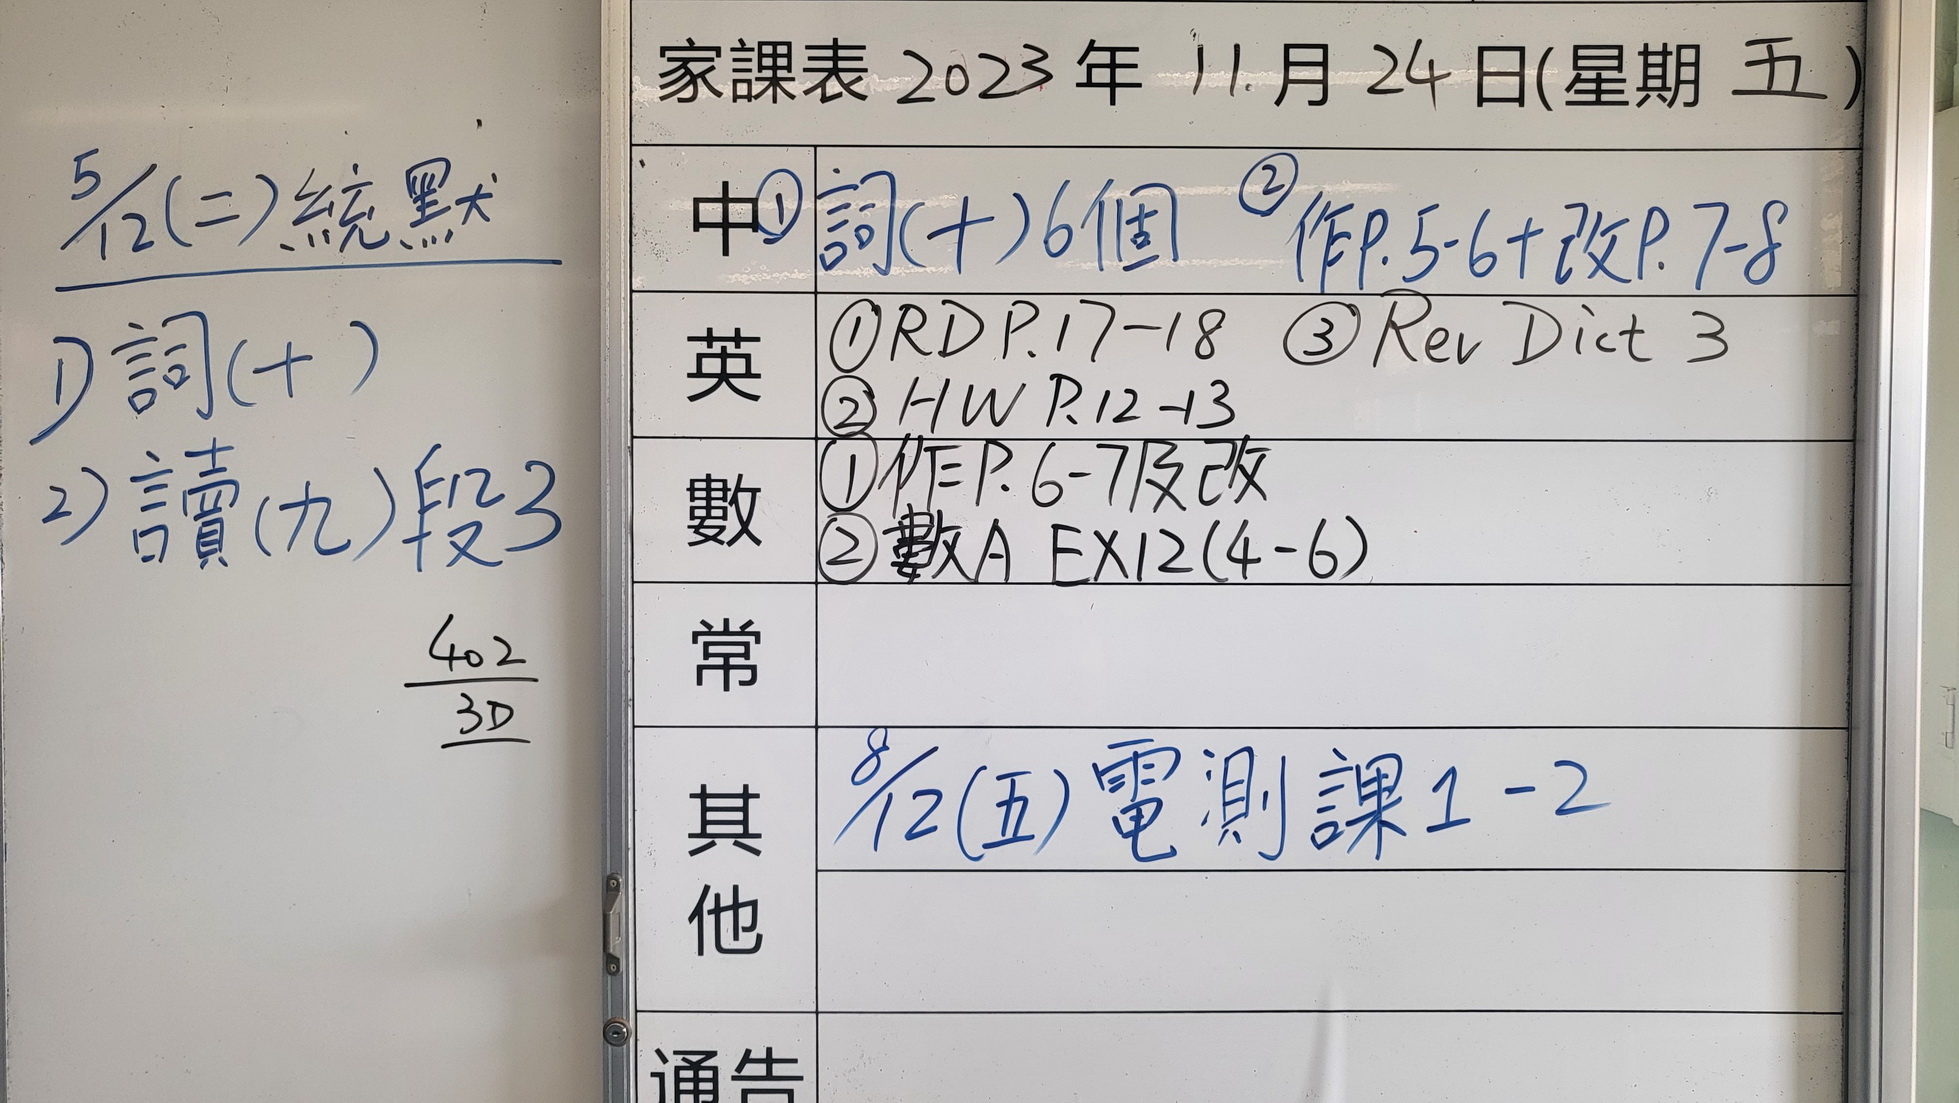 5/12(二)統默
1) 詞(十)
2) 讀(九)段3
402
30
家課表 2023 年 11 月 24 日(星期 五)
中 ① 詞(十)6個 ② 作P.5-6+改P.7-8
英 ① RD P.17-18 ③ Rev Dict 3
② HW P.12-13
數 ① 作P.6-7及改
② 數A EX12(4-6)
常
其他 8/12(五)電測課1-2
通告